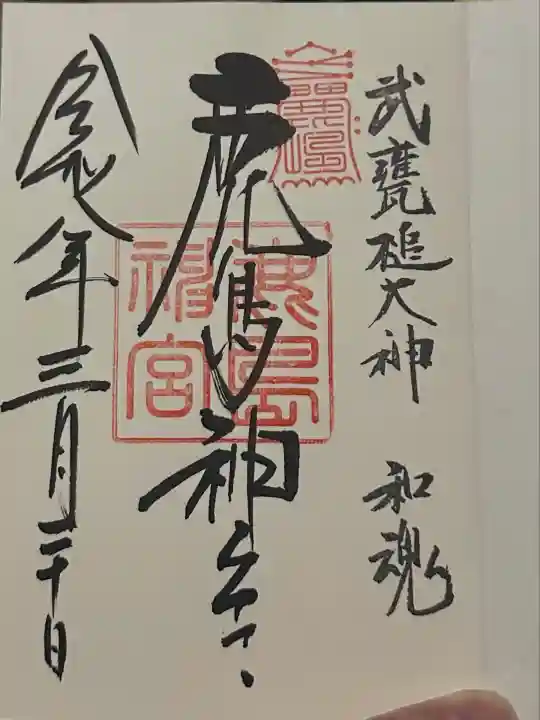 武甕槌大神 和魂
鹿島神宮
鹿島神宮
令和年三月二十日